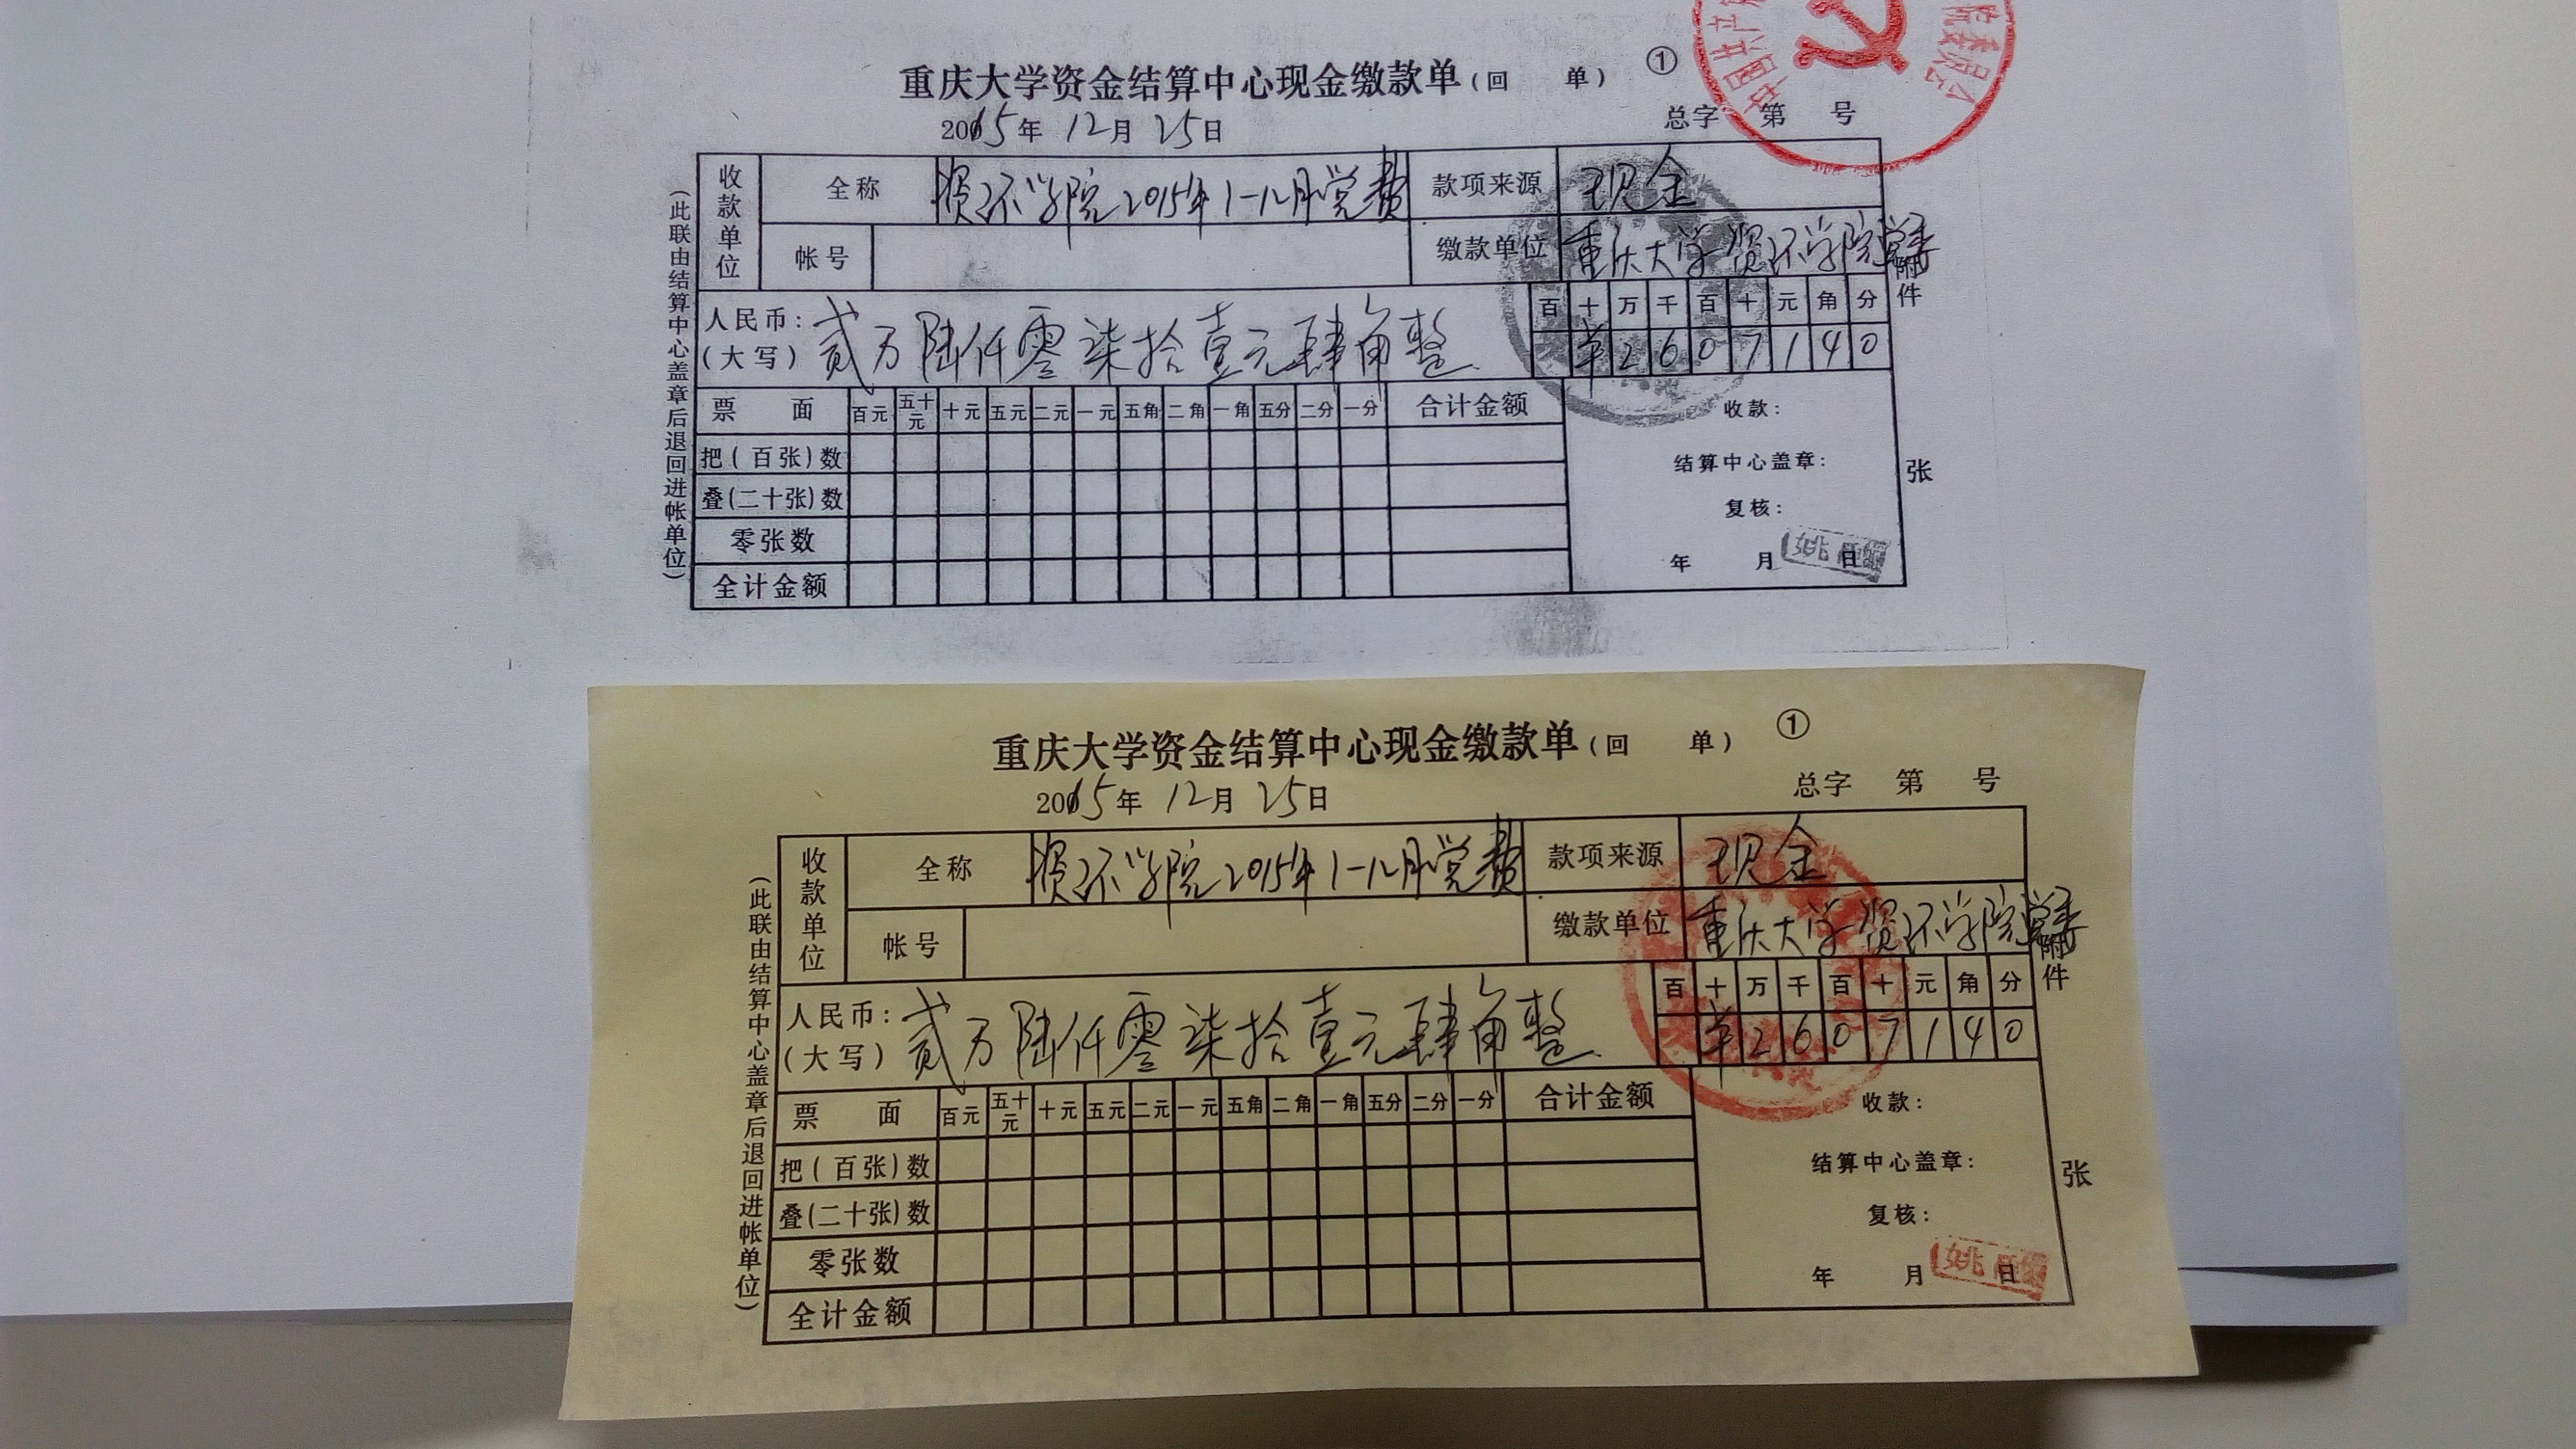 重庆大学资金结算中心现金缴款单(回 单) ①
2015年 12月 25日
总字 第 号
收款单位 全称 资环学院2015年1-12月党费 款项来源 现金
帐号 缴款单位 重庆大学资环学院党委
附件 张
人民币:(大写) 贰万陆仟零柒拾壹元肆角整 百 十 万 千 百 十 元 角 分
¥ 2 6 0 7 1 4 0
票 面 百元 五十元 十元 五元 二元 一元 五角 二角 一角 五分 二分 一分 合计金额
收款:
把(百张)数
结算中心盖章:
叠(二十张)数
复核:
零张数
年 月 日
全计金额
(此联由结算中心盖章后退回进帐单位)
重庆大学资金结算中心现金缴款单(回 单) ①
2015年 12月 25日
总字 第 号
收款单位 全称 资环学院2015年1-12月党费 款项来源 现金
帐号 缴款单位 重庆大学资环学院党委
附件 张
人民币:(大写) 贰万陆仟零柒拾壹元肆角整 百 十 万 千 百 十 元 角 分
¥ 2 6 0 7 1 4 0
票 面 百元 五十元 十元 五元 二元 一元 五角 二角 一角 五分 二分 一分 合计金额
收款:
把(百张)数
结算中心盖章:
叠(二十张)数
复核:
零张数
年 月 日
全计金额
(此联由结算中心盖章后退回进帐单位)